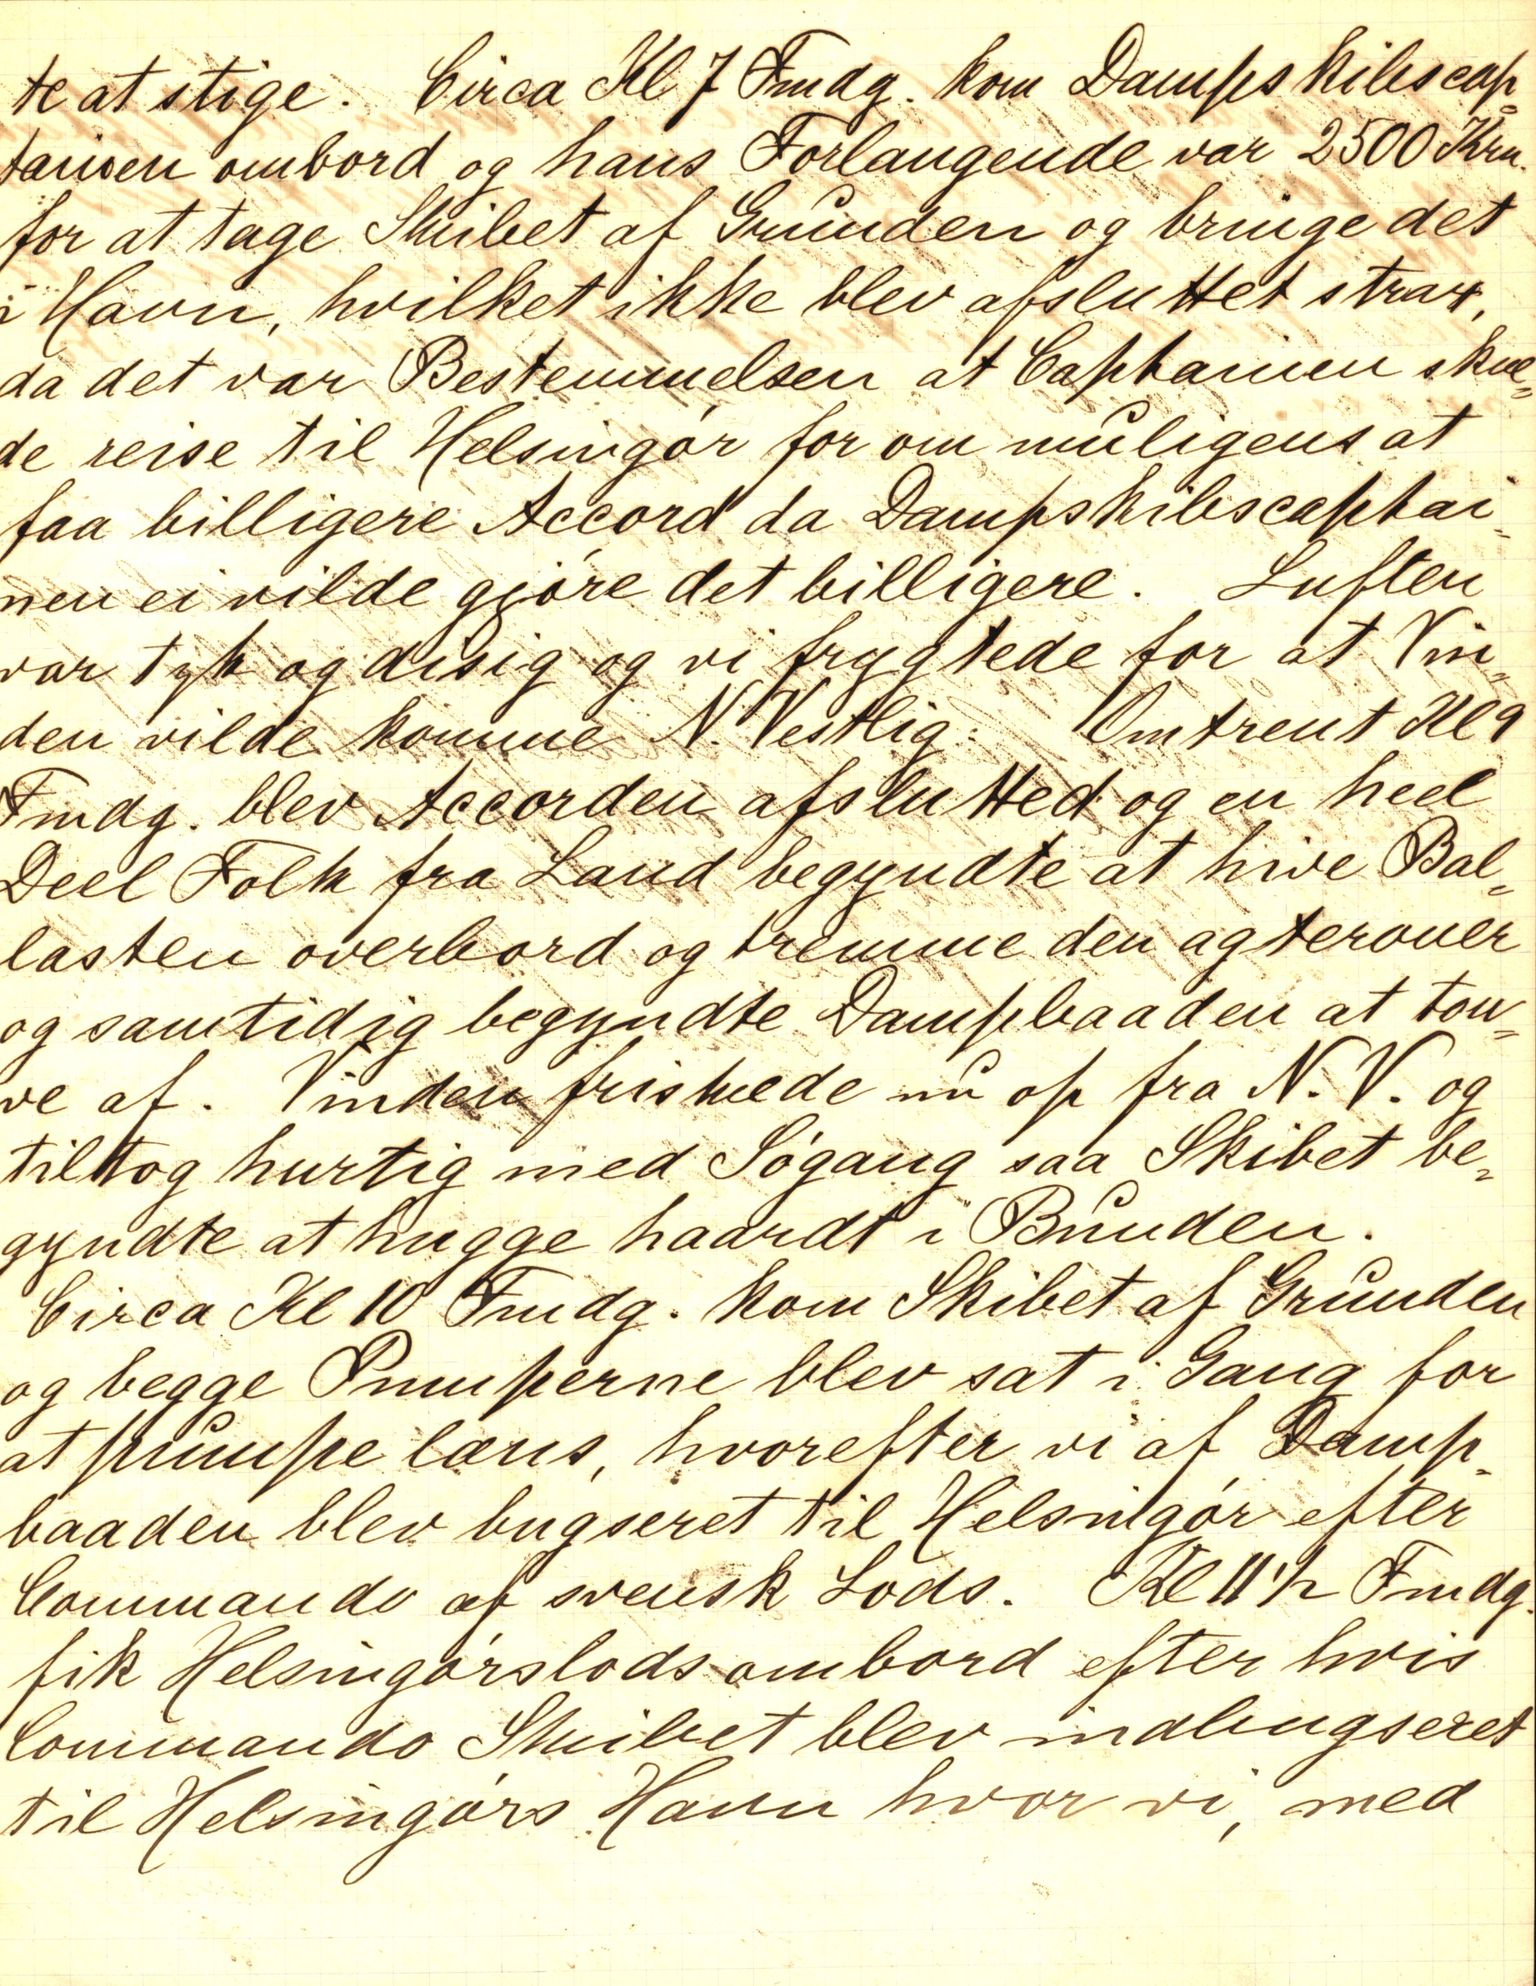 te at stige. Circa Kl 7 Fmdg. kom Dampskibscap-
tainen ombord og hans Forlangende var 2500 Krn.
for at tage Skibet af Grunden og bringe det
i Havn, hvilket ikke blev afsluttet strax,
da det var Bestemmelsen at Captainen skul=
de reise til Helsingør for om muligens at
faa billigere Accord da Dampskibscaptai-
nen ei vilde gjøre det billigere. Luften
var tyk og disig og vi frygtede for at Vin=
den vilde komme N. Vestlig. Omtrent Kl 9
Fmdg. blev Accorden afslutted og en heel
Deel Folk fra Land begyndte at hive Bal=
lasten overbord og tremme den agterover
og samtidig begyndte Dampbaaden at tou=
ve af. Vinden friskede nu op fra N. V. og
tiltog hurtig med Søgang saa Skibet be=
gyndte at hugge haardt i Bunden.
Circa Kl 10 Fmdg. kom Skibet af Grunden
og begge Pumperne blev sat i Gang for
at pumpe læns, hvorefter vi af Damp-
baaden blev bugseret til Helsingør efter
Commando af svensk Lods. Kl 11 1/2 Fmdg.
fik Helsingørslods ombord efter hvis
Commando Skibet blev indbugseret
til Helsingørs Havn hvor vi, med